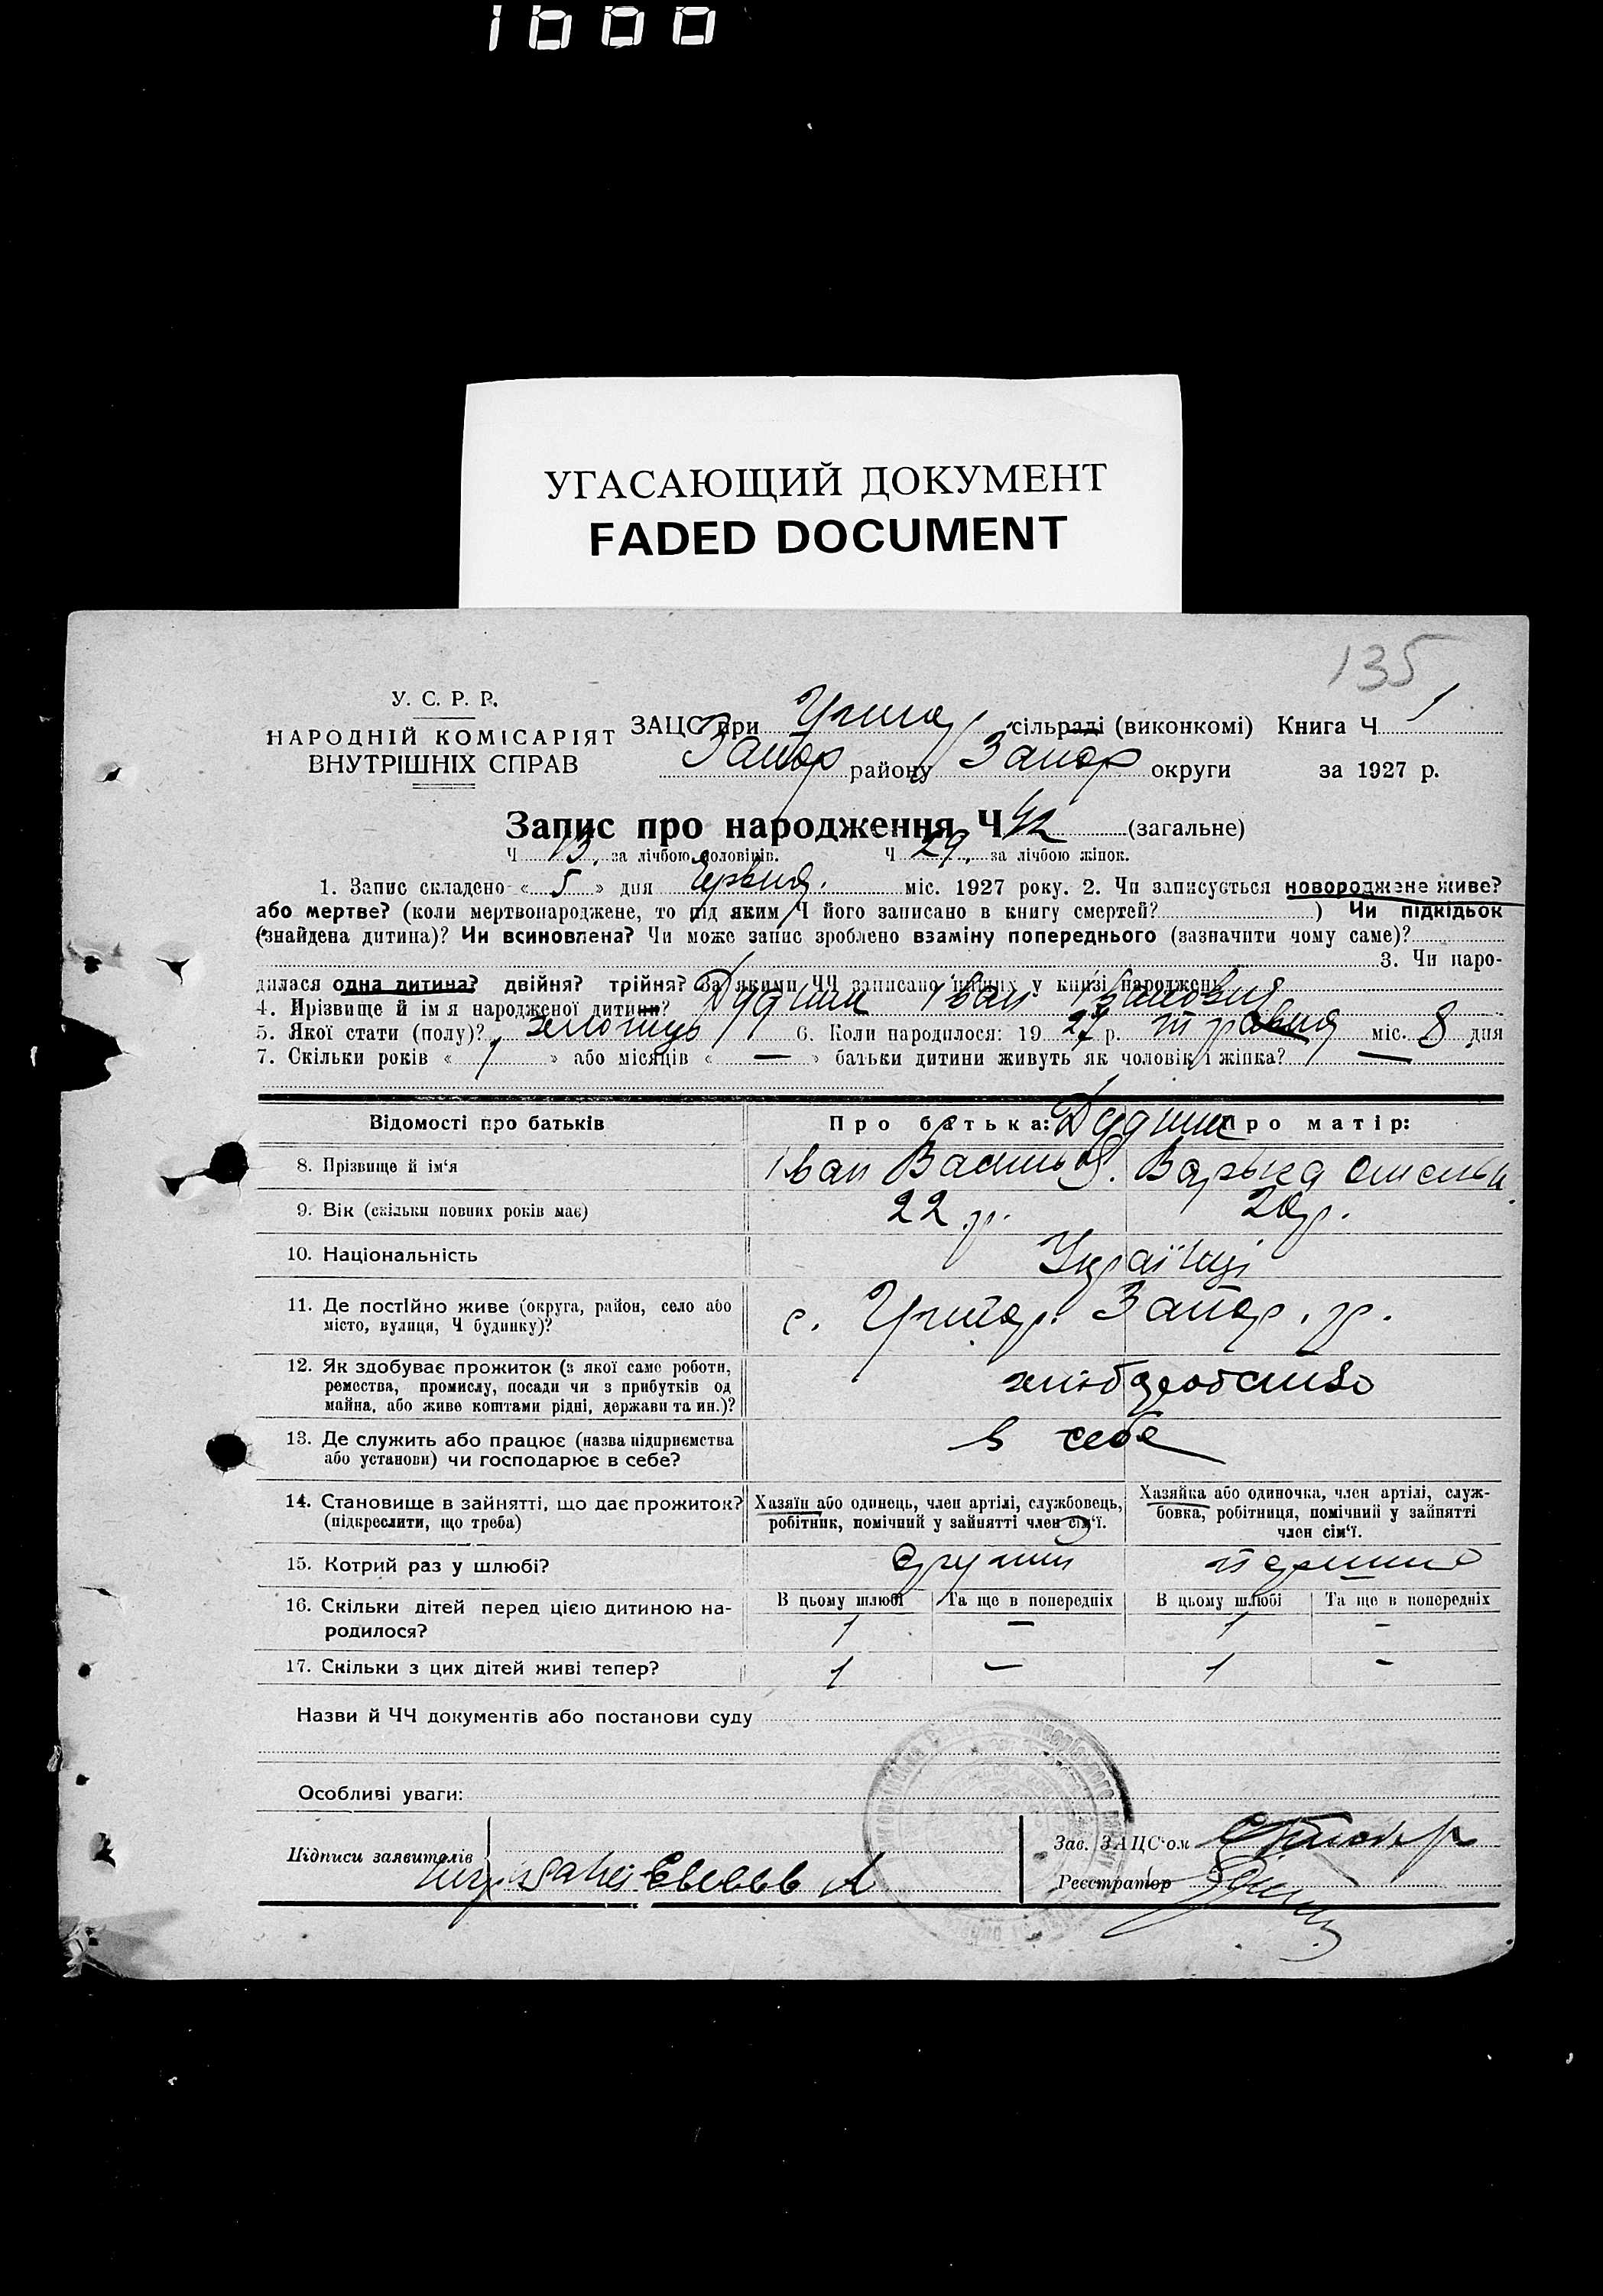 1000
УГАСАЮЩИЙ ДОКУМЕНТ
FADED DOCUMENT
135
У. С. Р. Р.
НАРОДНІЙ КОМІСАРІЯТ
ВНУТРІШНІХ СПРАВ
ЗАЦС при сільраді (виконкомі) Книга Ч 1
Запор району Запор округи за 1927 р.
Запис про народження Ч 42 (загальне)
Ч 13, за лічбою чоловіків. Ч 29, за лічбою жінок.
1. Запис складено «5» дня Червня. міс. 1927 року. 2. Чи записується новороджене живе?
або мертве? (коли мертвонароджене, то під яким Ч його записано в книгу смертей? ) Чи підкідьок
(знайдена дитина)? Чи всиновлена? Чи може запис зроблено взаміну попереднього (зазначити чому саме)?
3. Чи наро-
дилася одна дитина? двійня? трійня? За якими ЧЧ записано інших у книзі народжень
4. Прізвище й ім'я народженої дитини? Іван Іванович
5. Якої стати (полу)? хлопець 6. Коли народилося: 1927 р. травня міс. 8 дня
7. Скільки років «1» або місяців «—» батьки дитини живуть як чоловік і жінка? —
Відомості про батьків
Про батька: Про матір:
8. Прізвище й ім'я Іван Васильов. Варька Омельк
9. Вік (скільки повних років має) 22 р. 20 р.
10. Національність Українці
11. Де постійно живе (округа, район, село або
місто, вулиця, Ч будинку)? с. Запор. р.
12. Як здобуває прожиток (з якої саме роботи,
ремества, промислу, посади чи з прибутків од
майна, або живе коштами рідні, держави та ин.)? хліборобство
13. Де служить або працює (назва підприємства
або установи) чи господарює в себе? в себе
14. Становище в зайнятті, що дає прожиток?
(підкреслити, що треба)
Хазяїн або одинець, член артілі, службовець,
робітник, помічний у зайнятті член сім'ї.
Хазяйка або одиночка, член артілі, служ-
бовка, робітниця, помічний у зайнятті
член сім'ї.
15. Котрий раз у шлюбі? другий
16. Скільки дітей перед цією дитиною на-
родилося?
В цьому шлюбі Та ще в попередніх В цьому шлюбі Та ще в попередніх
1 — 1 -
17. Скільки з цих дітей живі тепер? 1 — 1 -
Назви й ЧЧ документів або постанови суду
Особливі уваги:
Підписи заявителів
Зав. ЗАЦС'ом
Реєстратор